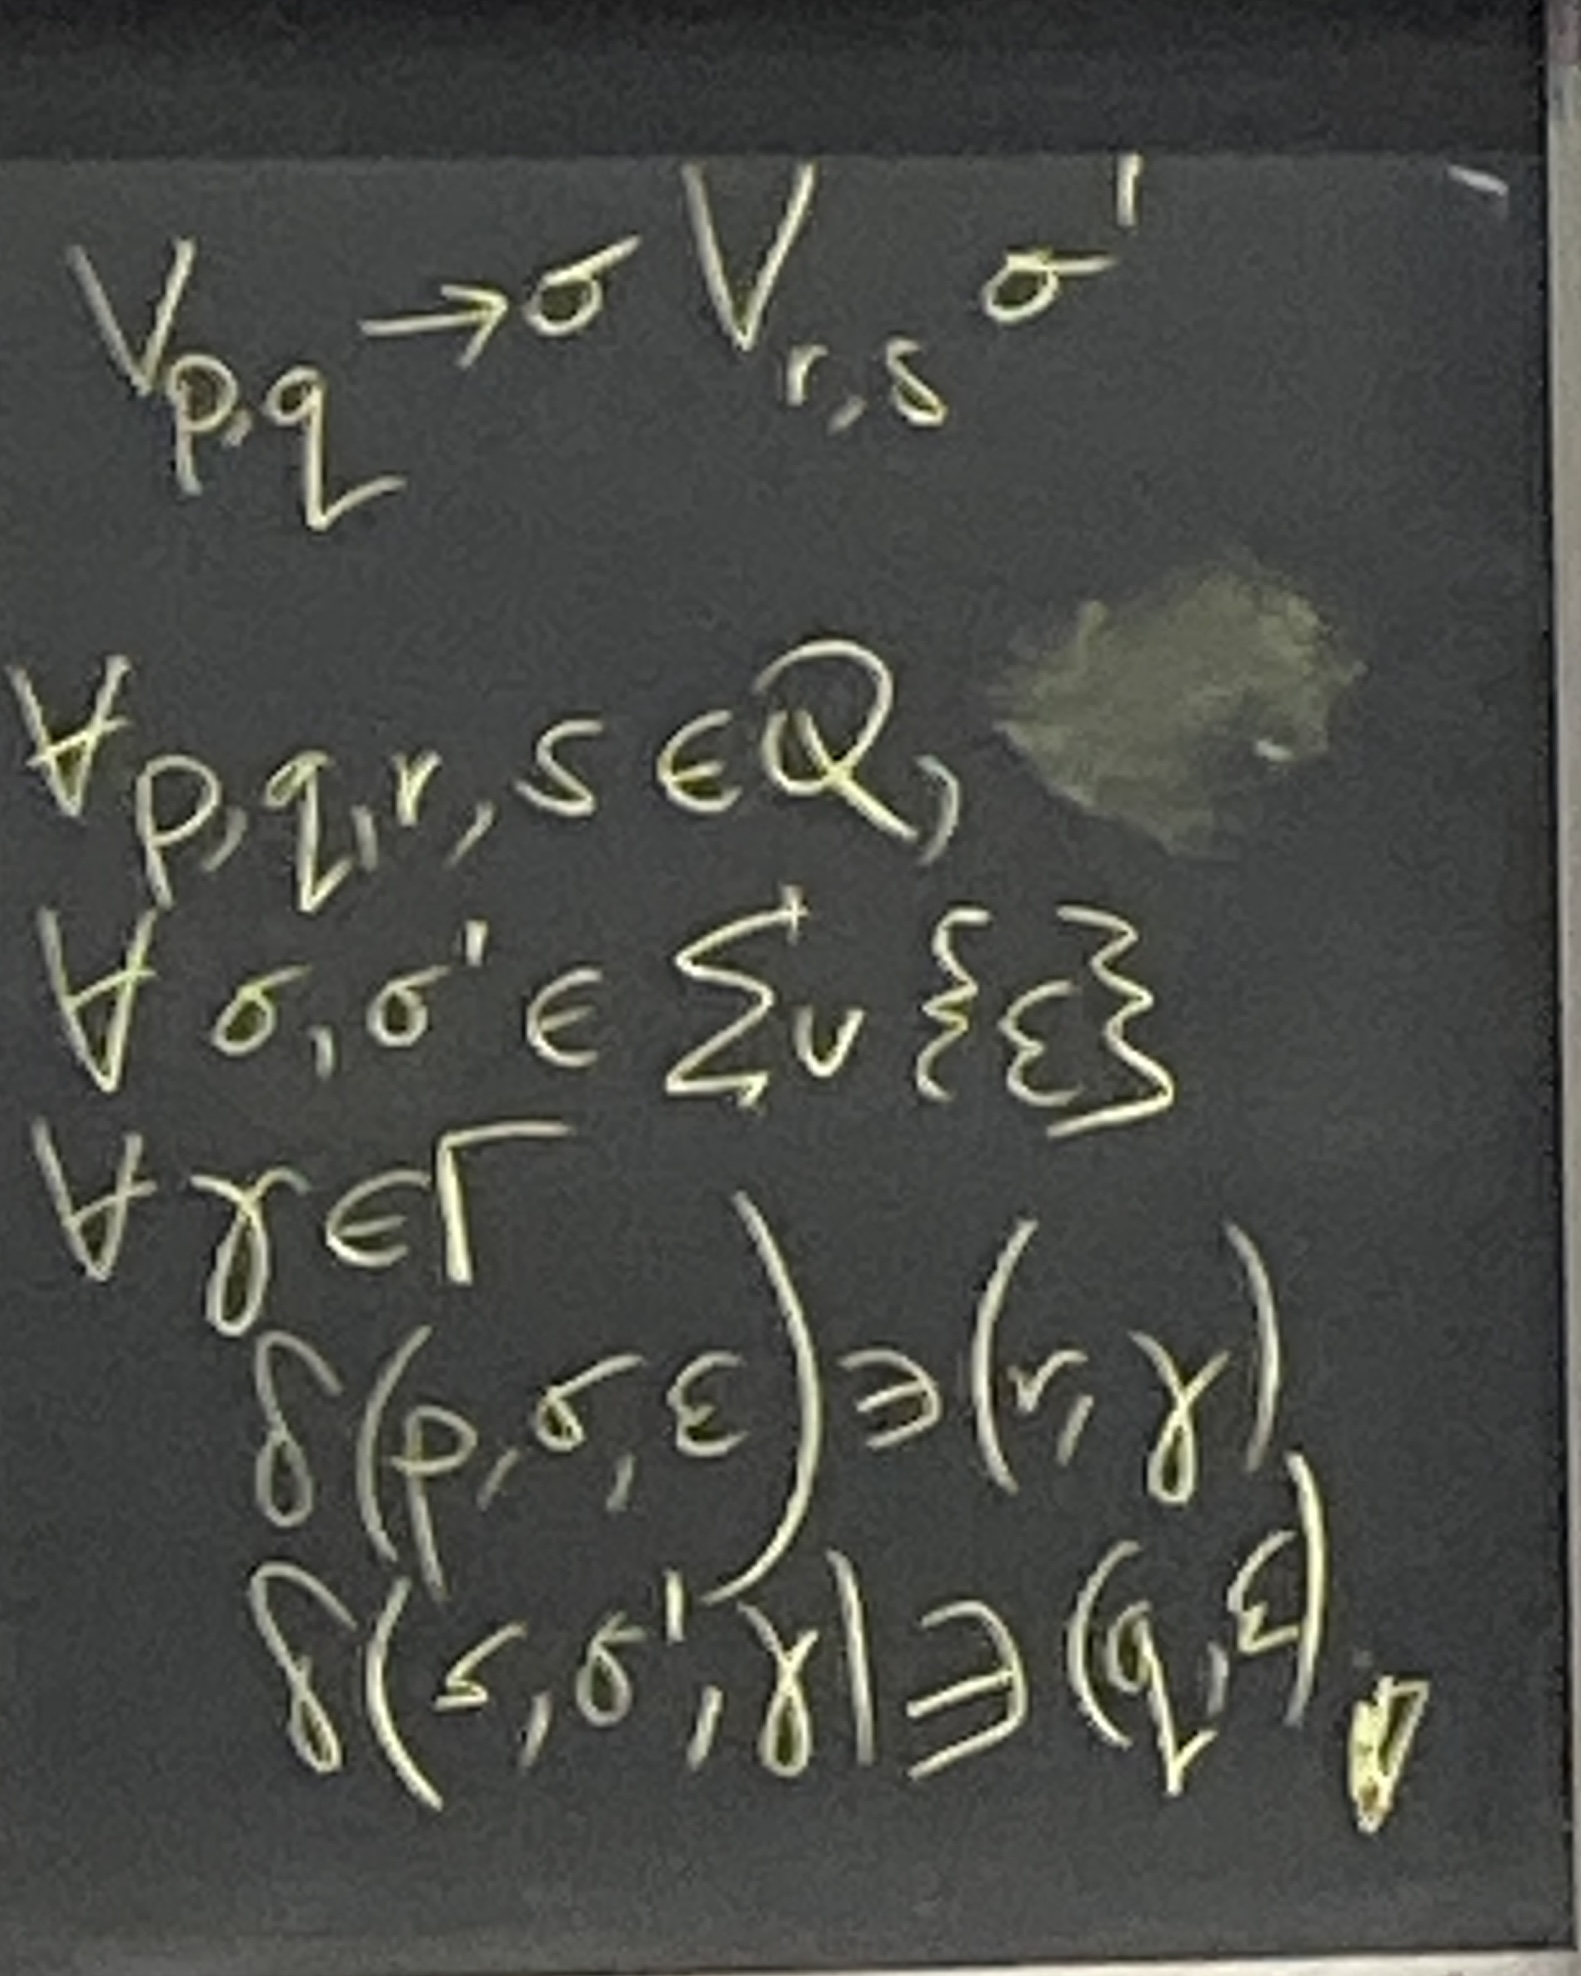 V_{p,q} → σ V_{r,s} σ'
∀ p,q,r,s ∈ Q,
∀ σ,σ' ∈ Σ ∪ {ε}
∀ γ ∈ Γ
δ(p,σ,ε) ∋ (r,γ)
δ(s,σ',γ) ∋ (q,ε).